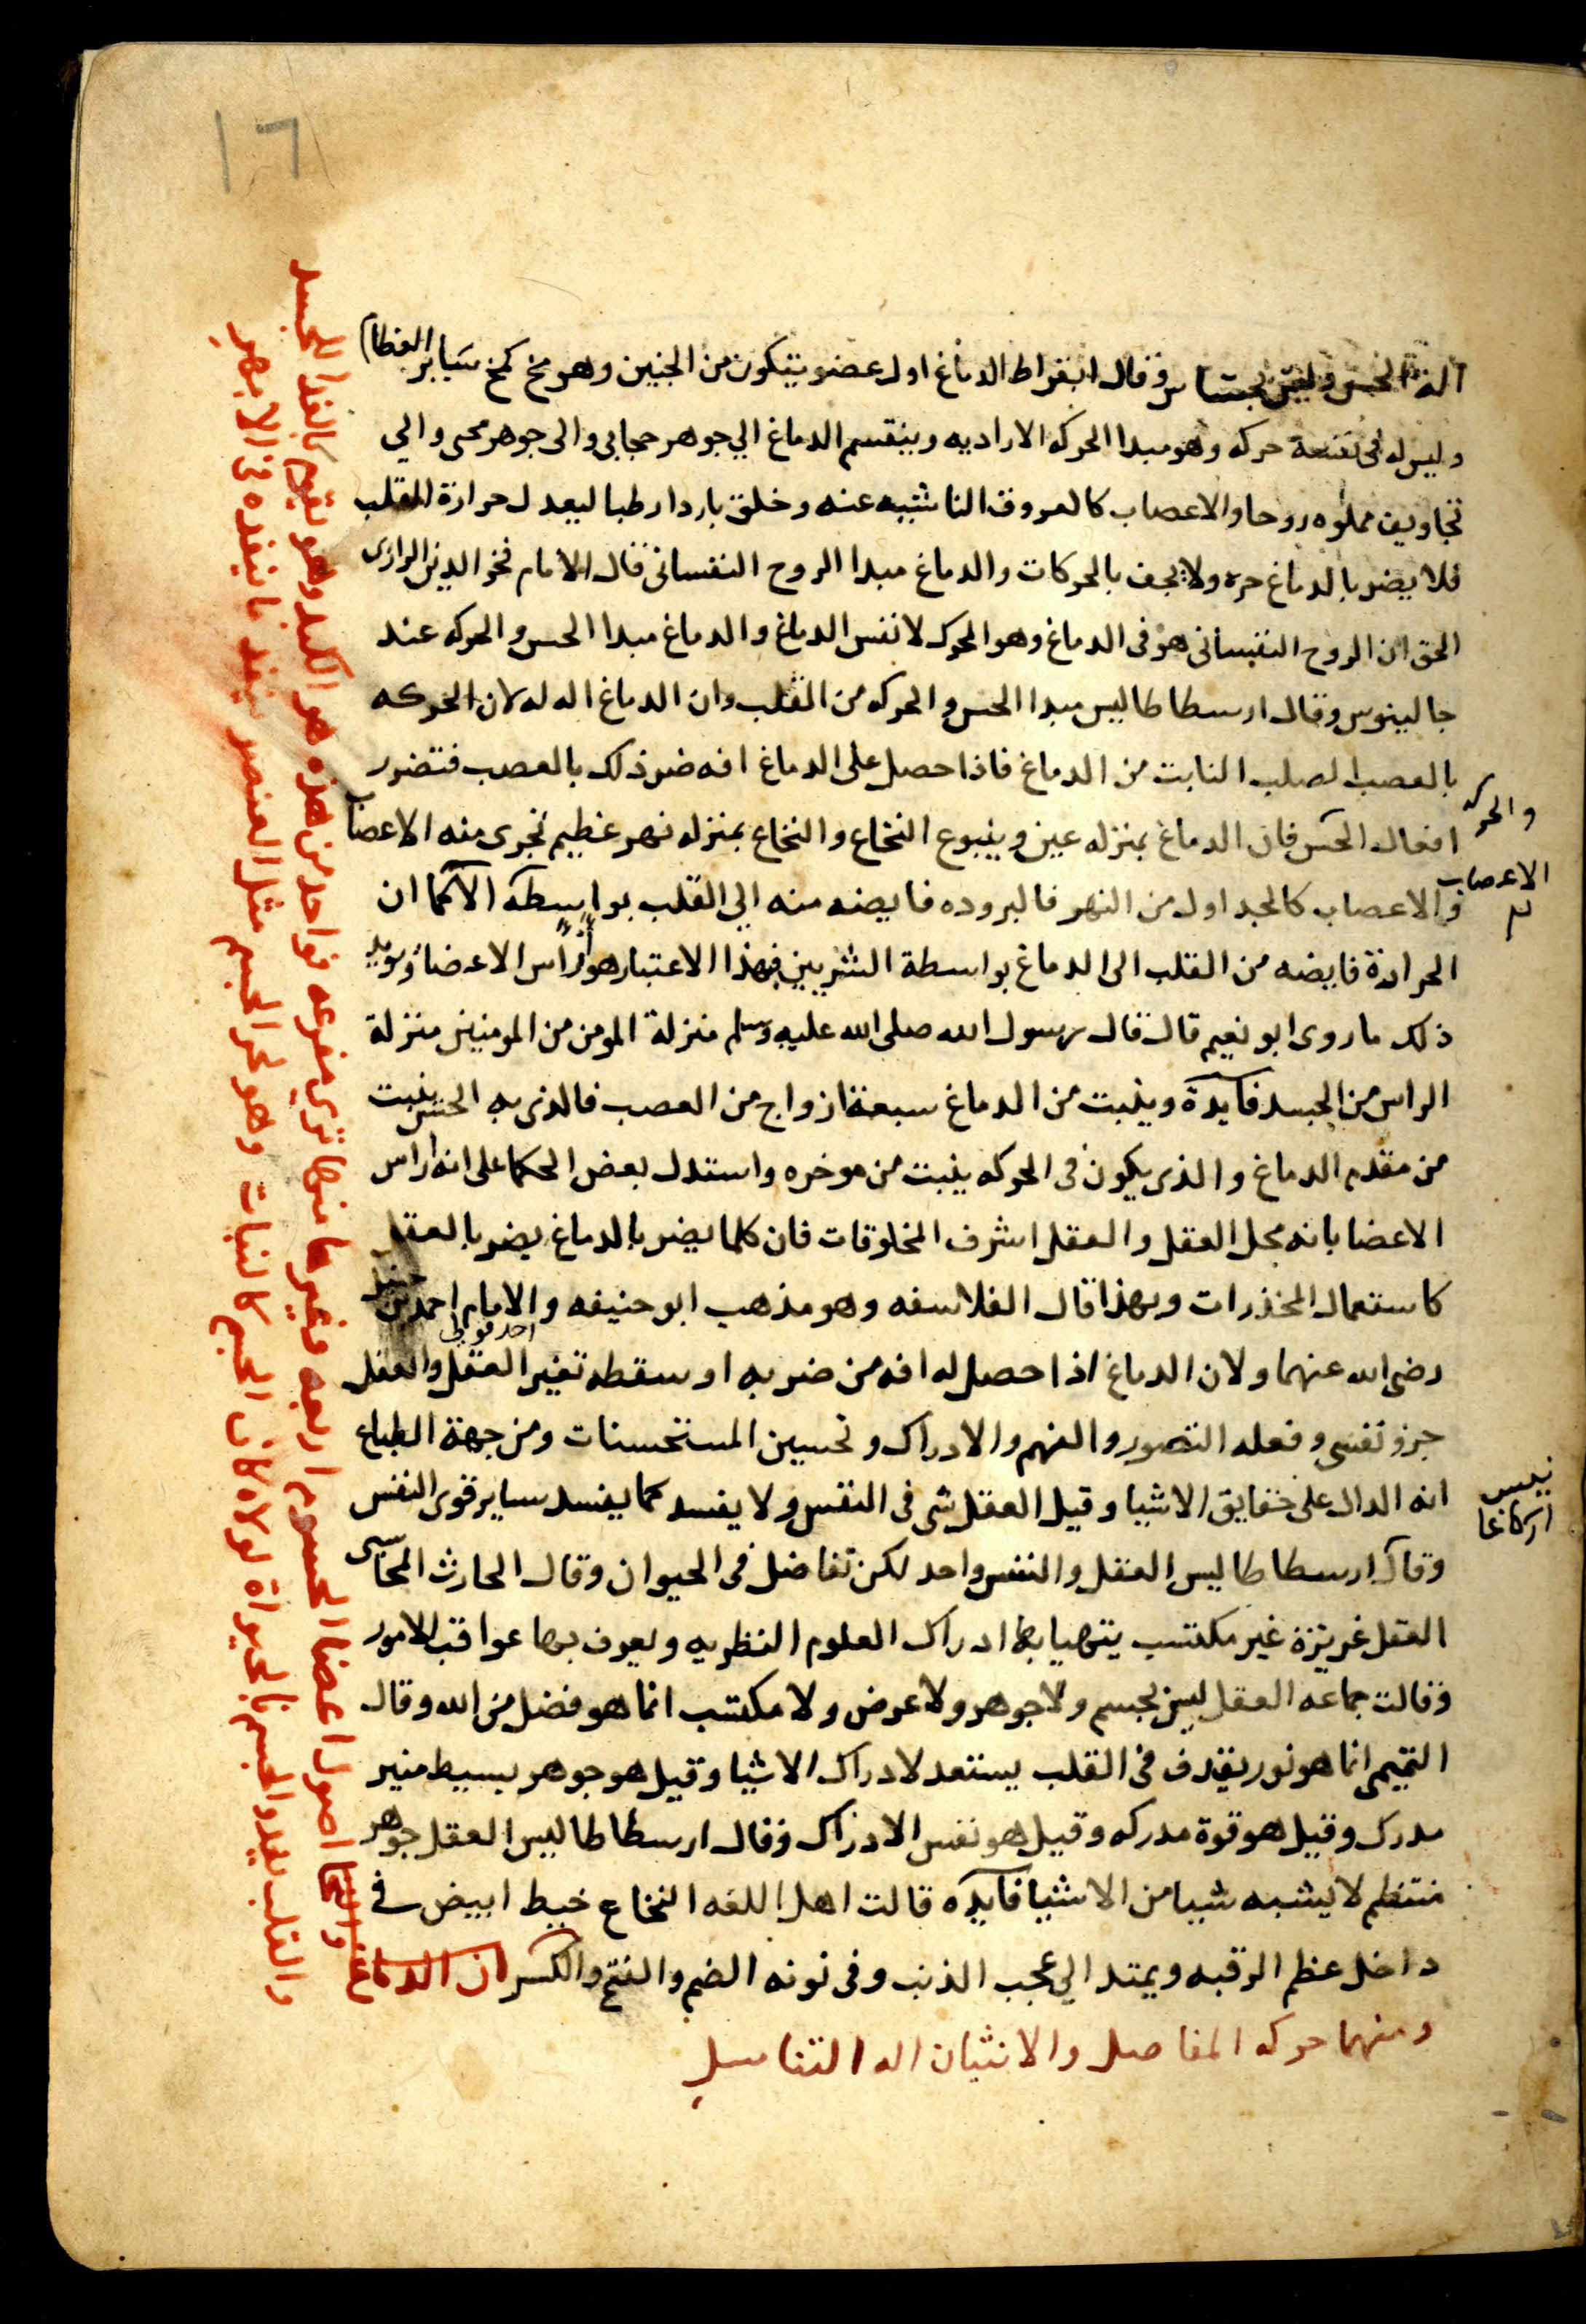 ١٦
آلة الحس وليس بحساس وقال ابقراط الدماغ اول عضو يتكون من الجنين وهو مخ كمخ سَاير العظام
وليس له في نفسه حركه وهو مبدا الحركه الاراديه وينقسم الدماغ الي جوهر حجابي والى جوهر مخي والي
تجاويف مملوه روحا والاعصاب كالعروق الناشيه عنه وخلق باردا رطبا ليعدل حرارة القلب
فلا يضر بالدماغ حره ولا يجف بالحركات والدماغ مبدا الروح النفساني قال الامام فخر الدين الرازى
الحق ان الروح النفساني هو فى الدماغ وهو المحرك لا نفس الدماغ والدماغ مبدا الحس والحركه عند
جالينوس وقال ارسطاطاليس مبدا الحس والحركه من القلب وان الدماغ اله له لان الحركه
بالعصب الصلب النابت من الدماغ فاذا حصل على الدماغ افه ضر ذلك بالعصب فتضرر
افعال الحس فان الدماغ بمنزله عين وينبوع النخاع والنخاع بمنزله نهر عظيم تجرى منه الاعصاب
والاعصاب كالجداول من النهر فالبروده فايضه منه الي القلب بواسطه الا كما ان
الحرارة فايضه من القلب الى الدماغ بواسطة الشريين فبهذا الاعتبار هو راس الاعضا ويويد
ذلك ما روى ابو نعيم قال قال رسول الله صلى الله عليه وسلم منزلة المومن من المومنين منزلة
الراس من الجسد فايدة وينبت من الدماغ سبعة ازواج من العصب فالذى به الحس ينبت
من مقدم الدماغ والذى يكون فى الحركه ينبت من موخره واستدل بعض الحكما على انه راس
الاعضا بانه محل العقل والعقل اشرف المخلوقات فان كلما يضر بالدماغ يضر بالعقل
كاستعمال المخذرات وبهذا قال الفلاسفه وهو مذهب ابو حنيفه والامام احمد بن حنبل
احد قولى
رضى الله عنهما ولان الدماغ اذا حصل له افه من ضربه او سقطه تغير العقل والعقل
جزو نفسى وفعله التصور والفهم والادراك وتحسين المستحسنات ومن جهة الطباع
انه الدال على حقايق الاشيا وقيل العقل شى فى النفس ولا يفسد كما يفسد ساير قوى النفس
وقال ارسطاطاليس العقل والنفس واحد لكن تفاضل فى الحيوان وقال الحارث المحاسبى
العقل غريزة غير مكتسب يتهيا بها ادراك العلوم النظريه ويعرف بها عواقب الامور
وقالت جماعه العقل ليس بجسم ولا جوهر ولا عرض ولا مكتسب انما هو فضل من الله وقال
التميمى انما هو نور يقذف فى القلب يستعد لادراك الاشيا وقيل هو جوهر بسيط منير
مدرك وقيل هو قوة مدركه وقيل هو نفس الادراك وقال ارسطاطاليس العقل جوهر
منتظم لا يشبه شيا من الاشيا فايده قالت اهل اللغه النخاع خيط ابيض فى
داخل عظم الرقبه ويمتد الي عجب الذنب وفى نونه الضم والفتح والكسر ان الدماغ
ومنهما حركه المفاصل والانثيان اله التناسل
والحركه
الاعصاب
اصول اعضا الجسوم اربعه وغيرها منها ترى مفرعه فواحد من هذه هو الكبد وهو يقوم بالغذا للجسد
والقلب يفيد والجسم بالحيواة لولاه كان الجسم كالنبات وهو لحر الجسم مثل العنصر ينفذ ما ينفذه فى الابهر